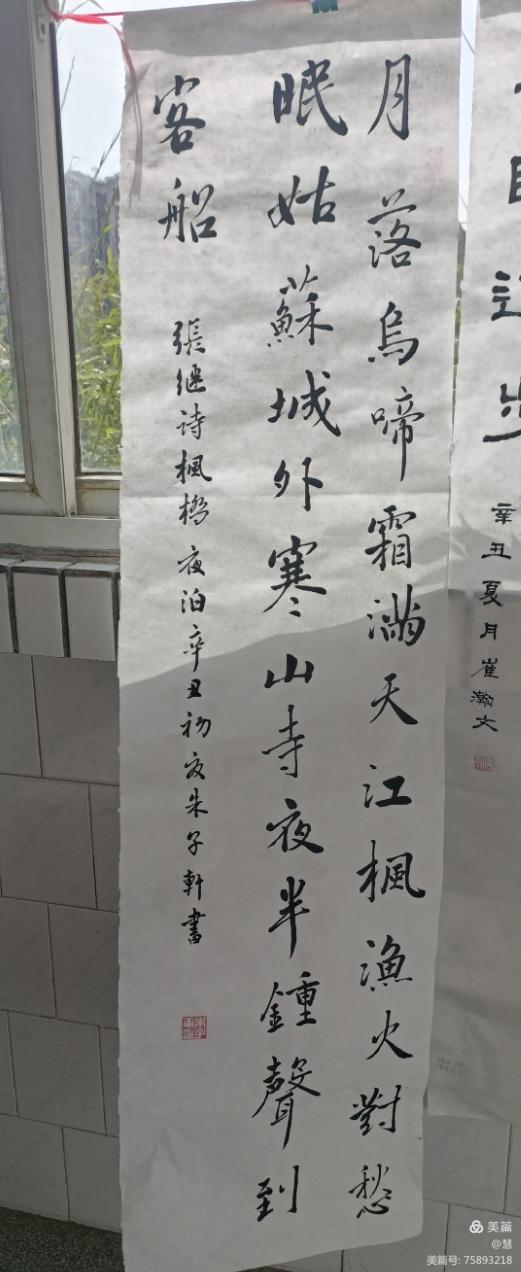 辛丑夏月崔瀚文
月落烏啼霜满天江楓漁火對愁
眠姑蘇城外寒山寺夜半鍾聲到
客船
張继诗楓橋夜泊辛丑初夏朱子軒書
美篇
@慧
美篇号: 75893218